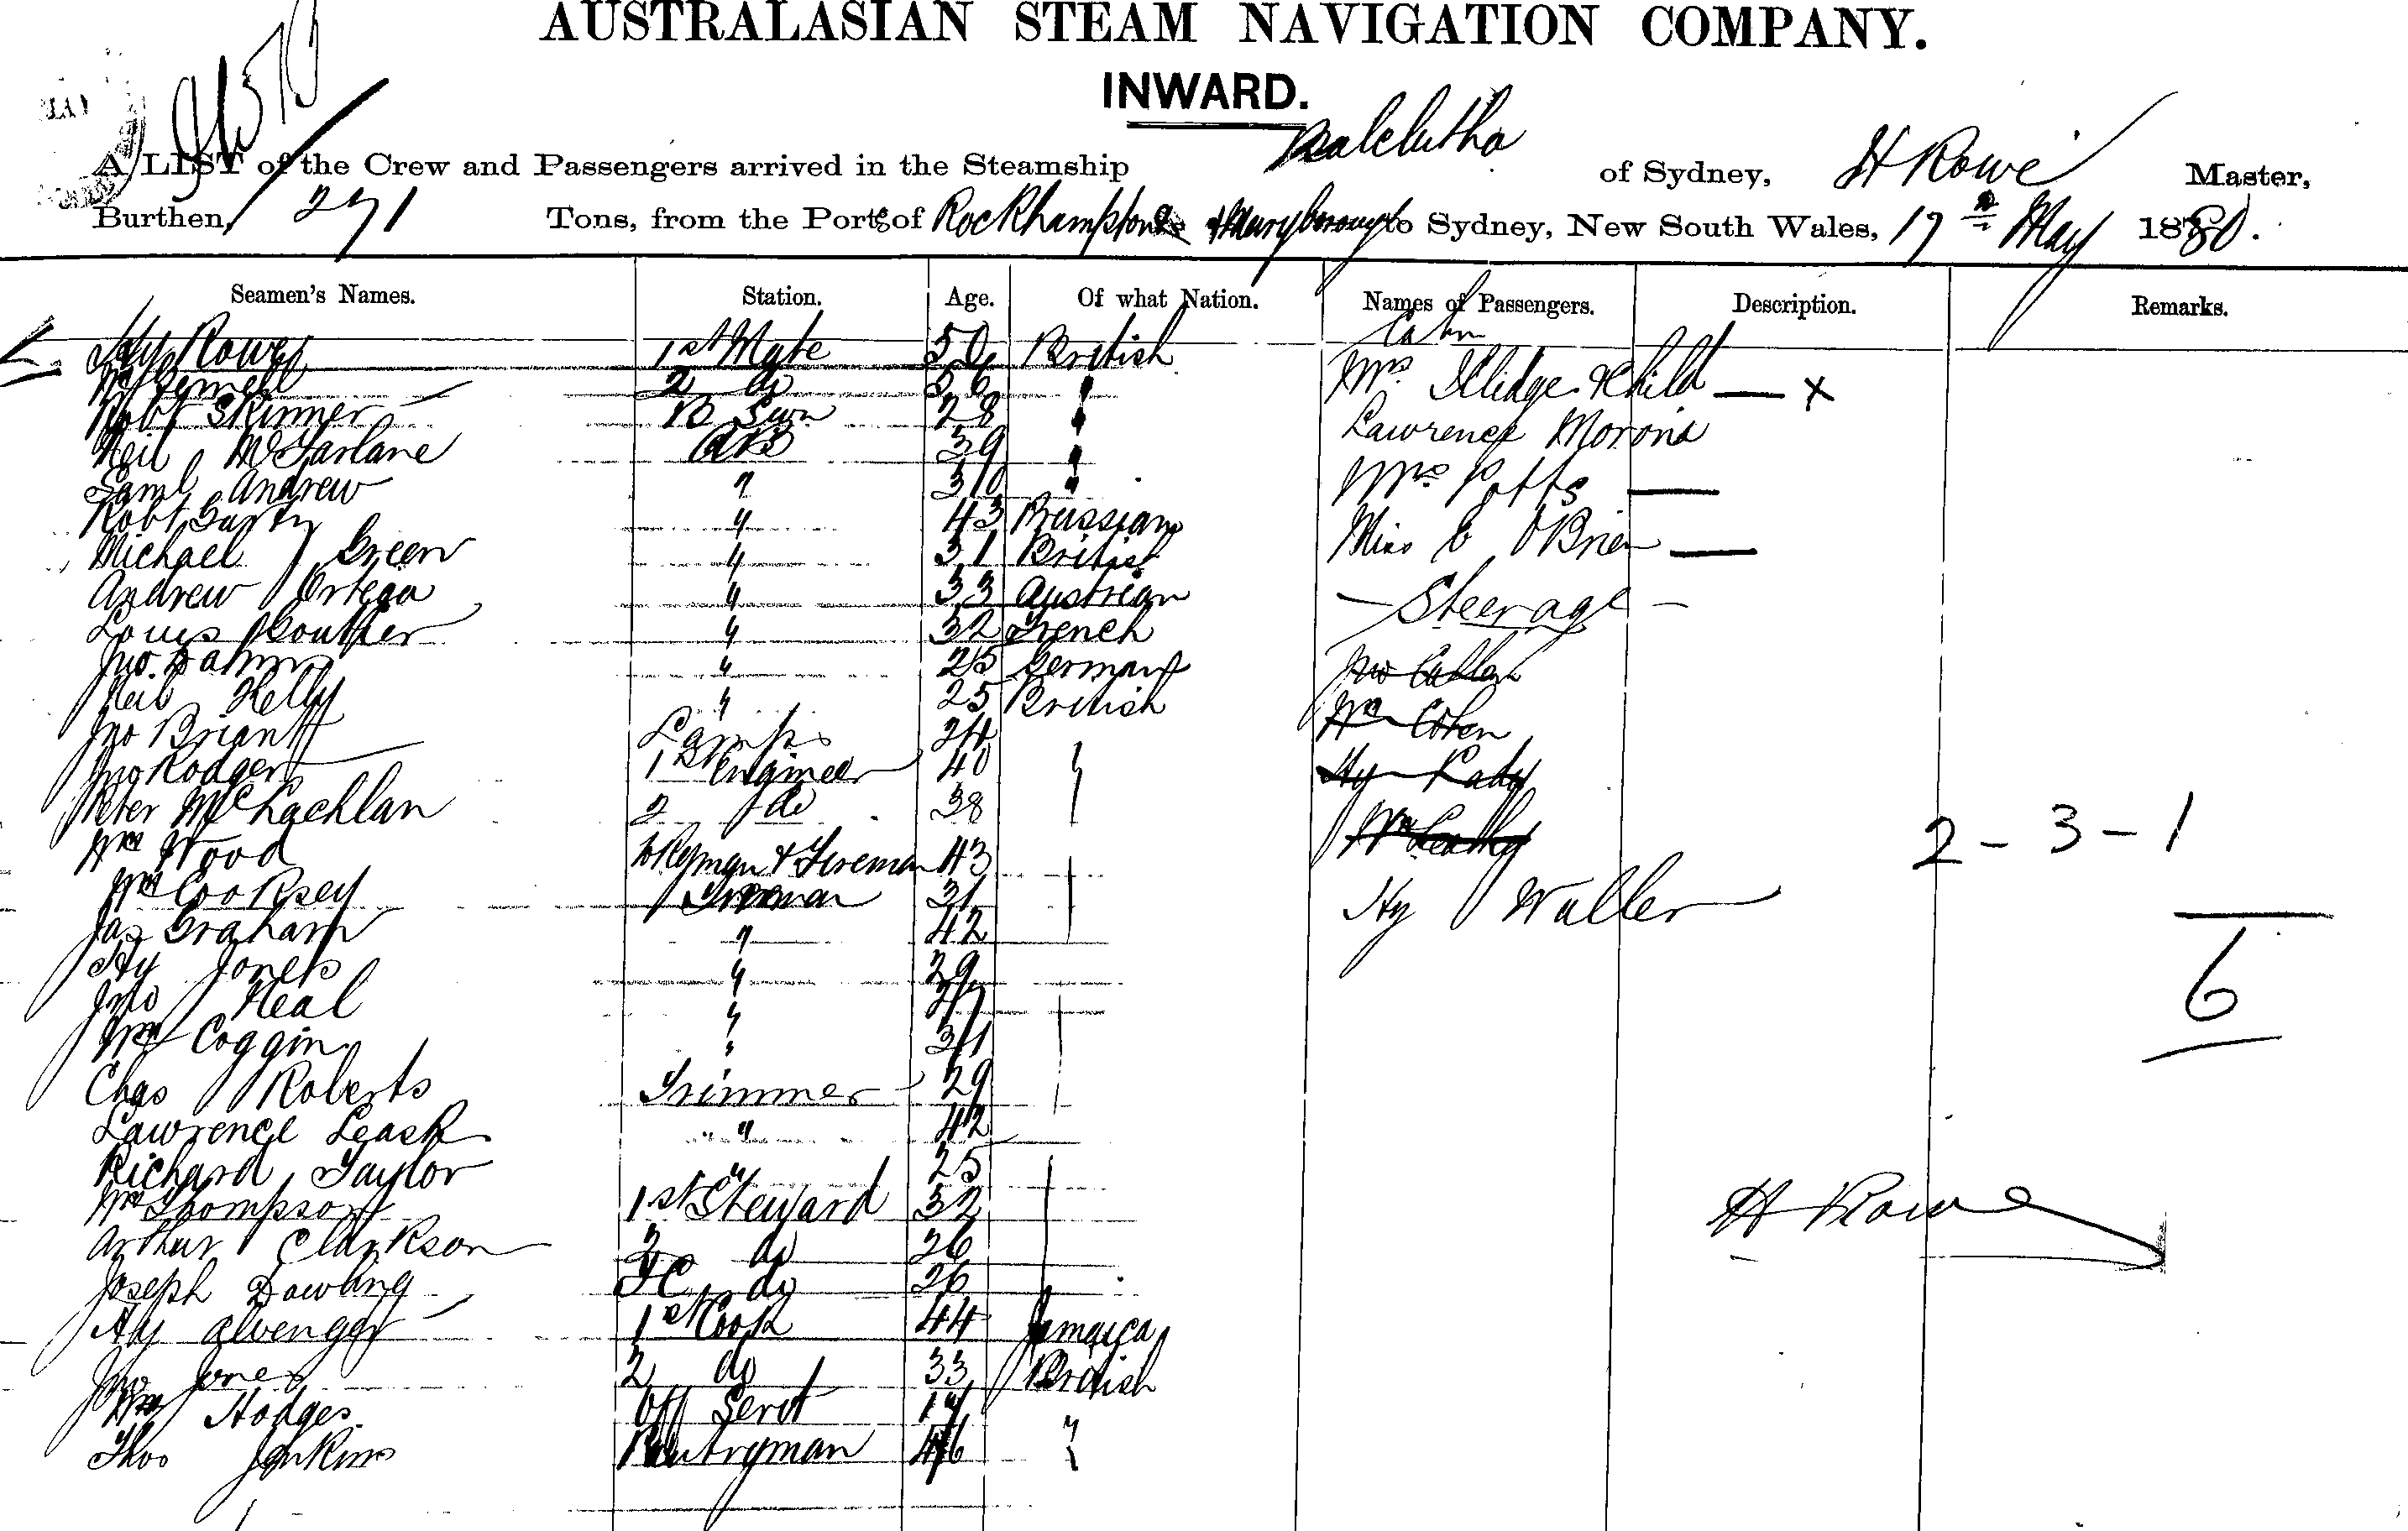 AUSTRALASIAN STEAM NAVIGATION COMPANY.
INWARD.
A LIST of the Crew and Passengers arrived in the Steamship Balclutha of Sydney, H Rowe Master,
Burthen 271 Tons, from the Ports of Rockhampton & Maryborough to Sydney, New South Wales, 17th May 1880.
Seamen's Names. Station. Age. Of what Nation. Names of Passengers. Description. Remarks.
Cabin
Hy Rowe 1st Mate 50 British
2 do 56 " Mrs Illidge & Child — x
Robt Skinner B Swn 28 " Lawrence Morona
Neil McFarlane AB 39 "
Saml Andrew " 30 " Mrs Potts —
Robt " 43 Prussian
Michael Green " 31 British Miss C O'Brien —
Andrew Ortega " 33 Austrian — Steerage —
Louis " 32 French
Jno " 25 German Jno
Neil Kelly " 25 British
Jno Briant Lamps 24 " Wm Cohen
Jno Rodger 1st Engineer 40 Hy
Peter McLachlan 2 do 38 Wm 2 - 3 - 1
Wm Wood & Fireman 43
Wm Cooksey Fireman 31 Hy Waller
Jas Graham " 42 6
Hy Jones " 29
Jno Neal " 27
Wm Coggin " 31
Chas Roberts Trimmer 29
Lawrence Leask " 42
Richard Taylor " 25
Wm Thompson 1st Steward 32 H Rowe
Arthur Clarkson 2 do 26
Joseph Dowling FC do 26
Hy 1st Cook 44 Jamaica
Jno Jones 2 do 33 British
Wm Hodges Off Servt 17 "
Thos Jenkins Pantryman 46 "